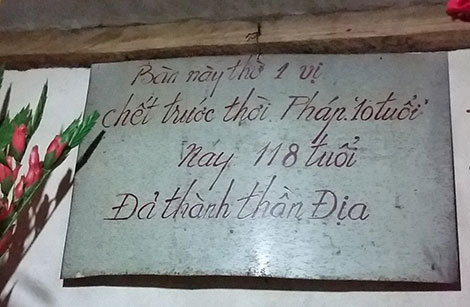 Bàn này thờ 1 vị
chết trước thời Pháp 10 tuổi
Nay 118 tuổi
Đả thành thần Địa